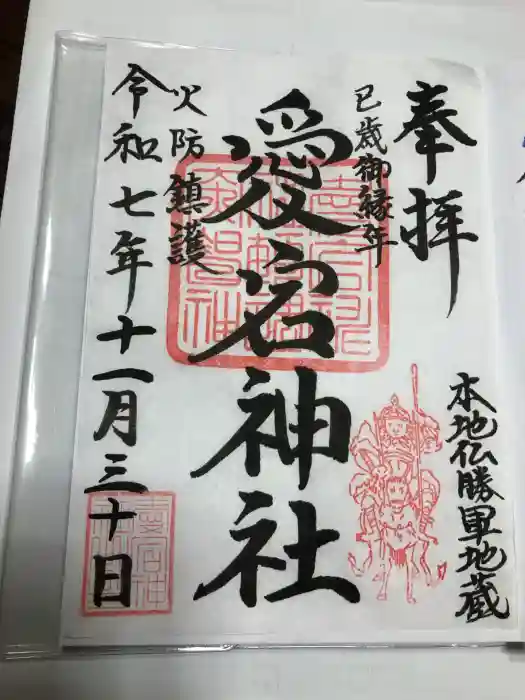 奉拝
本地仏勝軍地蔵
巳歳御縁年
愛宕神社
火防鎮護
令和七年十一月三十日